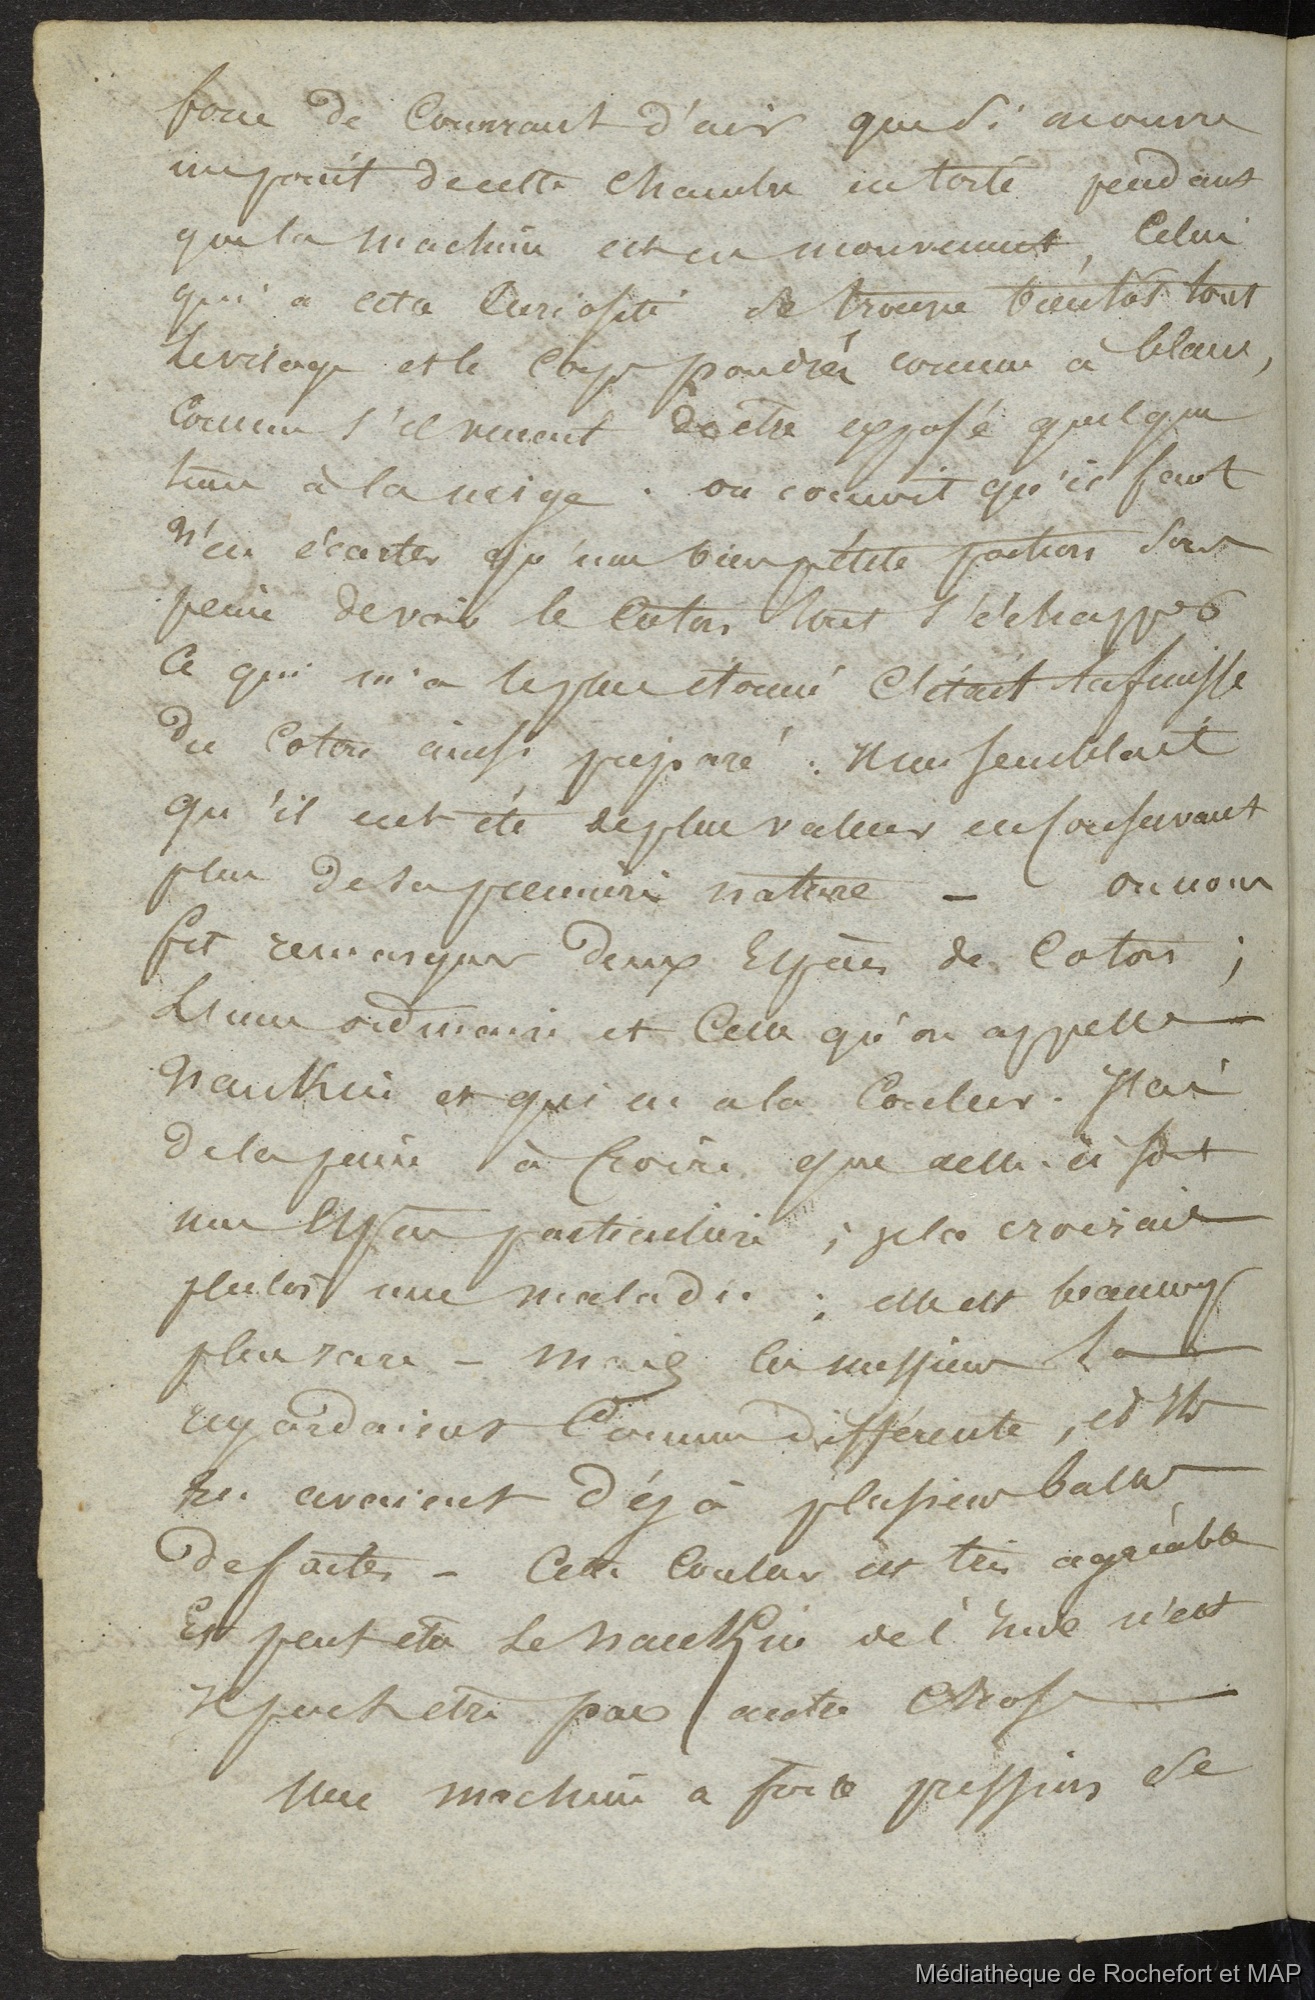 force de Courrant d'air que si on ouvre
un point de cette chambre en toile pendant
que la machine est en mouvement, Celui
qui a cette Curiosité se trouve bientôt tout
le visage et le Corps poudrés comme à blanc,
comme s'il venait de etre exposé quelque
tems à la neige. on conçoit qu'il faut
n'en écarter qu'une bien petite portion sous
peine de voir le Coton tout s'échapper
Ce qui m'a le plus étonné C'était la finesse
du Coton ainsi préparé. Il me semblait
qu'il eut été de plus valeur en conservant
plus de sa premiere nature — on nous
fit remarquer deux Especes de Coton ;
L'une ordinaire et Celle qu'on appelle
Nankin et qui en a la Couleur. J'ai
de la peine à Croire que celle-ci soit
une Espece particuliere ; je la croirais
plutôt une maladie ; elle est beaucoup
plus rare — mais les messieurs la
regardaient Comme différente, et ils
en avaient déjà plusieurs balles
de faites — Cette Couleur est très agréable
Et peut etre le Nankin de l'Inde n'est
il peut etre pas autre Chose
Une machine a forte pression de
Médiathèque de Rochefort et MAP